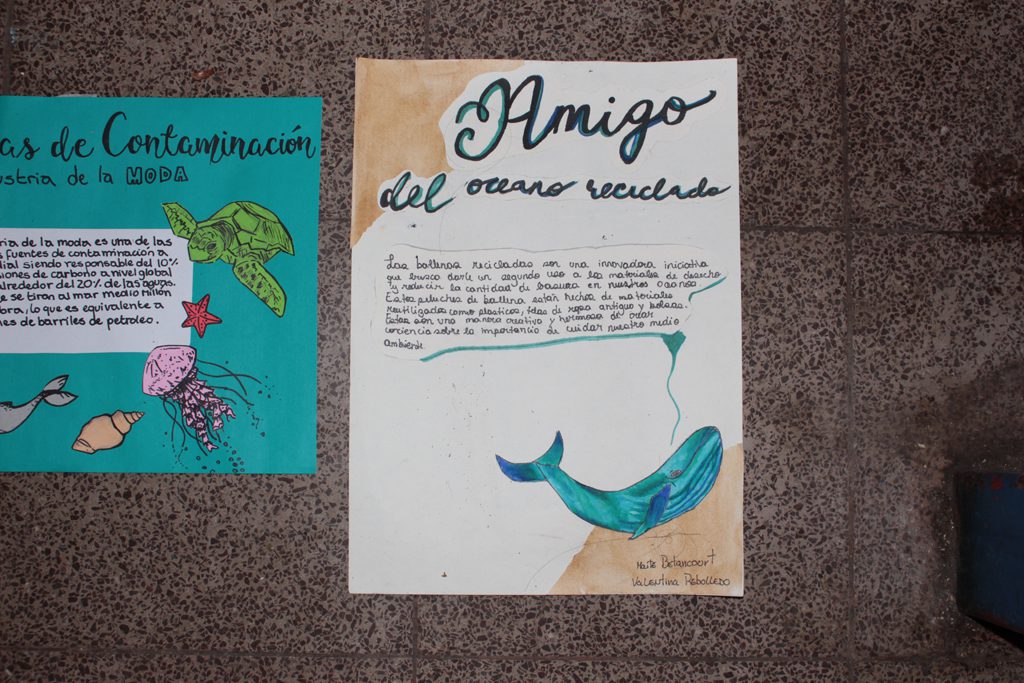 as de Contaminación
ustria de la MODA
ria de la moda es una de las
s fuentes de contaminación a
dial siendo responsable del 10%
iones de carbono a nivel global
alrededor del 20% de las aguas.
e se tiran al mar medio millón
bra, lo que es equivalente a
nes de barriles de petroleo.
Amigo
del oceano reciclado
Las ballenas recicladas son una innovadora iniciativa
que busca darle un segundo uso a los materiales de desecho
y reducir la cantidad de basura en nuestros oceanos.
Estos peluches de ballena están hechos de materiales
reutilizados como plasticos, telas de ropa antigua y bolsas.
Estas son una manera creativa y hermosa de crear
conciencia sobre la importancia de cuidar nuestro medio
ambiente.
Betancourt
Valentina Rebolledo